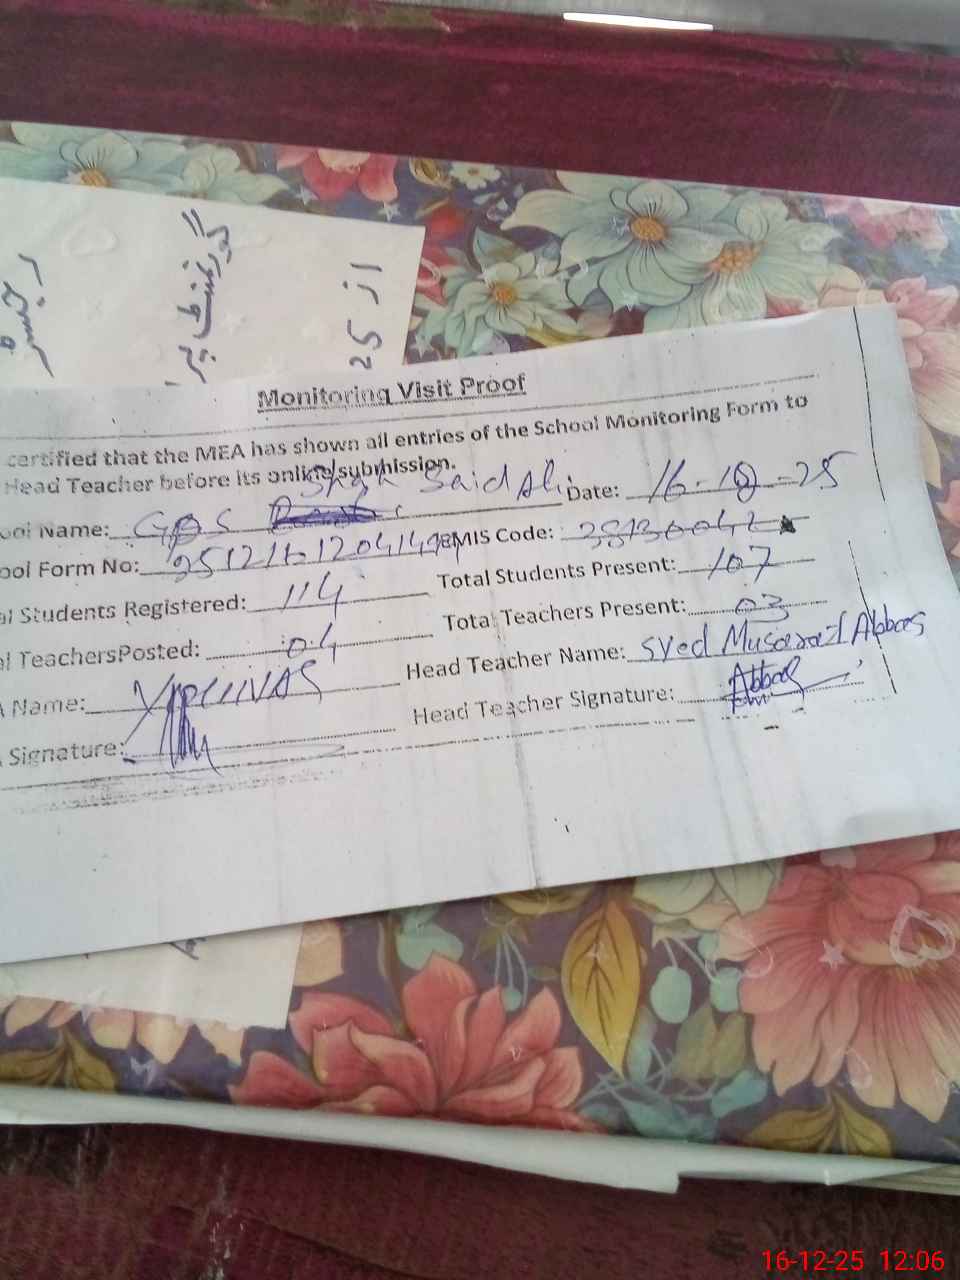 رجسٹر
گورنمنٹ
از 25
Monitoring Visit Proof
certified that the MEA has shown all entries of the School Monitoring Form to
Head Teacher before its online submission.
ool Name: GPS Shah Said Ali Date: 16-12-25
ool Form No: EMIS Code:
al Students Registered: 114 Total Students Present: 107
al TeachersPosted: 04 Total Teachers Present: 03
A Name: Head Teacher Name: Syed Abbas
A Signature: Head Teacher Signature: Abbas
16-12-25 12:06